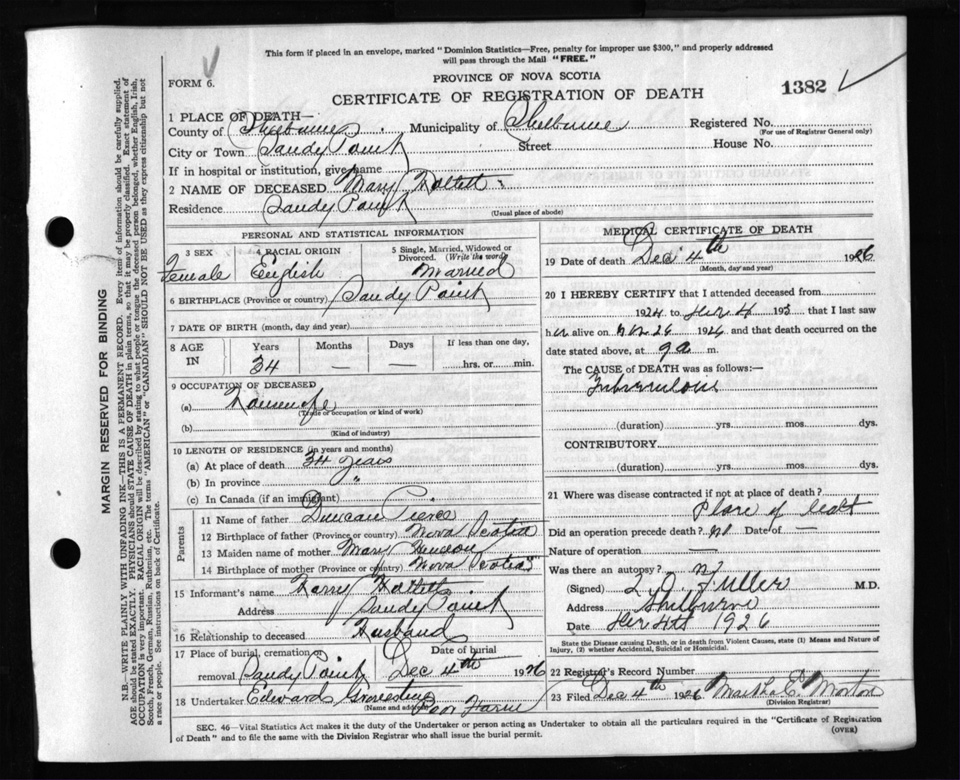 This form if placed in an envelope, marked "Dominion Statistics—Free, penalty for improper use $300," and properly addressed
will pass through the Mail "FREE."
FORM 6.
PROVINCE OF NOVA SCOTIA
CERTIFICATE OF REGISTRATION OF DEATH
1382
1 PLACE OF DEATH—
County of Shelburne Municipality of Shelburne Registered No.
(For use of Registrar General only)
City or Town Sandy Point Street House No.
If in hospital or institution, give name
2 NAME OF DECEASED Mary
Residence Sandy Point
(Usual place of abode)
PERSONAL AND STATISTICAL INFORMATION
3 SEX 4 RACIAL ORIGIN 5 Single, Married, Widowed or
Divorced. (Write the word)
Female English Married
6 BIRTHPLACE (Province or country) Sandy Point
7 DATE OF BIRTH (month, day and year)
8 AGE IN Years Months Days If less than one day,
34 — — hrs. or min.
9 OCCUPATION OF DECEASED
(a) Housewife
(Trade occupation or kind of work)
(b)
(Kind of industry)
10 LENGTH OF RESIDENCE (in years and months)
(a) At place of death 34 years
(b) In province "
(c) In Canada (if an immigrant)
Parents
11 Name of father Duncan Pierce
12 Birthplace of father (Province or country) Nova Scotia
13 Maiden name of mother Mary
14 Birthplace of mother (Province or country) Nova Scotia
15 Informant's name Harry
Address Sandy Point
16 Relationship to deceased Husband
17 Place of burial, cremation or removal Date of burial
Sandy Point Dec 4th 1926
18 Undertaker Edward
(Name and address) Poor Farm
MEDICAL CERTIFICATE OF DEATH
19 Date of death Dec 4th 1926
(Month, day and year)
20 I HEREBY CERTIFY that I attended deceased from
1924 to 193 that I last saw
her alive on Nov 26 1926 and that death occurred on the
date stated above, at 9 a m.
The CAUSE of DEATH was as follows:—
Tuberculosis
(duration) yrs. mos. dys.
CONTRIBUTORY
(duration) yrs. mos. dys.
21 Where was disease contracted if not at place of death?
Place of death
Did an operation precede death? no Date of —
Nature of operation —
Was there an autopsy? no
(Signed) L. O. Fuller M.D.
Address Shelburne
Date Dec 4th 1926
State the Disease causing Death, or in death from Violent Causes, state (1) Means and Nature of
Injury, (2) whether Accidental, Suicidal or Homicidal.
22 Registrar's Record Number
23 Filed Dec 4th 1926 Martha E. Morton
(Division Registrar)
SEC. 46—Vital Statistics Act makes it the duty of the Undertaker or person acting as Undertaker to obtain all the particulars required in the "Certificate of Registration
of Death" and to file the same with the Division Registrar who shall issue the burial permit.
(OVER)
MARGIN RESERVED FOR BINDING
N.B.—WRITE PLAINLY WITH UNFADING INK—THIS IS A PERMANENT RECORD. Every item of information should be carefully supplied.
AGE should be stated EXACTLY. PHYSICIANS should STATE CAUSE OF DEATH in plain terms, so that it may be properly classified. Exact statement of
OCCUPATION is very important. RACIAL ORIGIN will be described by stating to what people or tongue the deceased person belonged, whether English, Irish,
Scotch, French, German, Russian, Ruthenian, etc. The terms "AMERICAN" or "CANADIAN" SHOULD NOT BE USED as they express citizenship but not
a race or people. See instructions on back of Certificate.